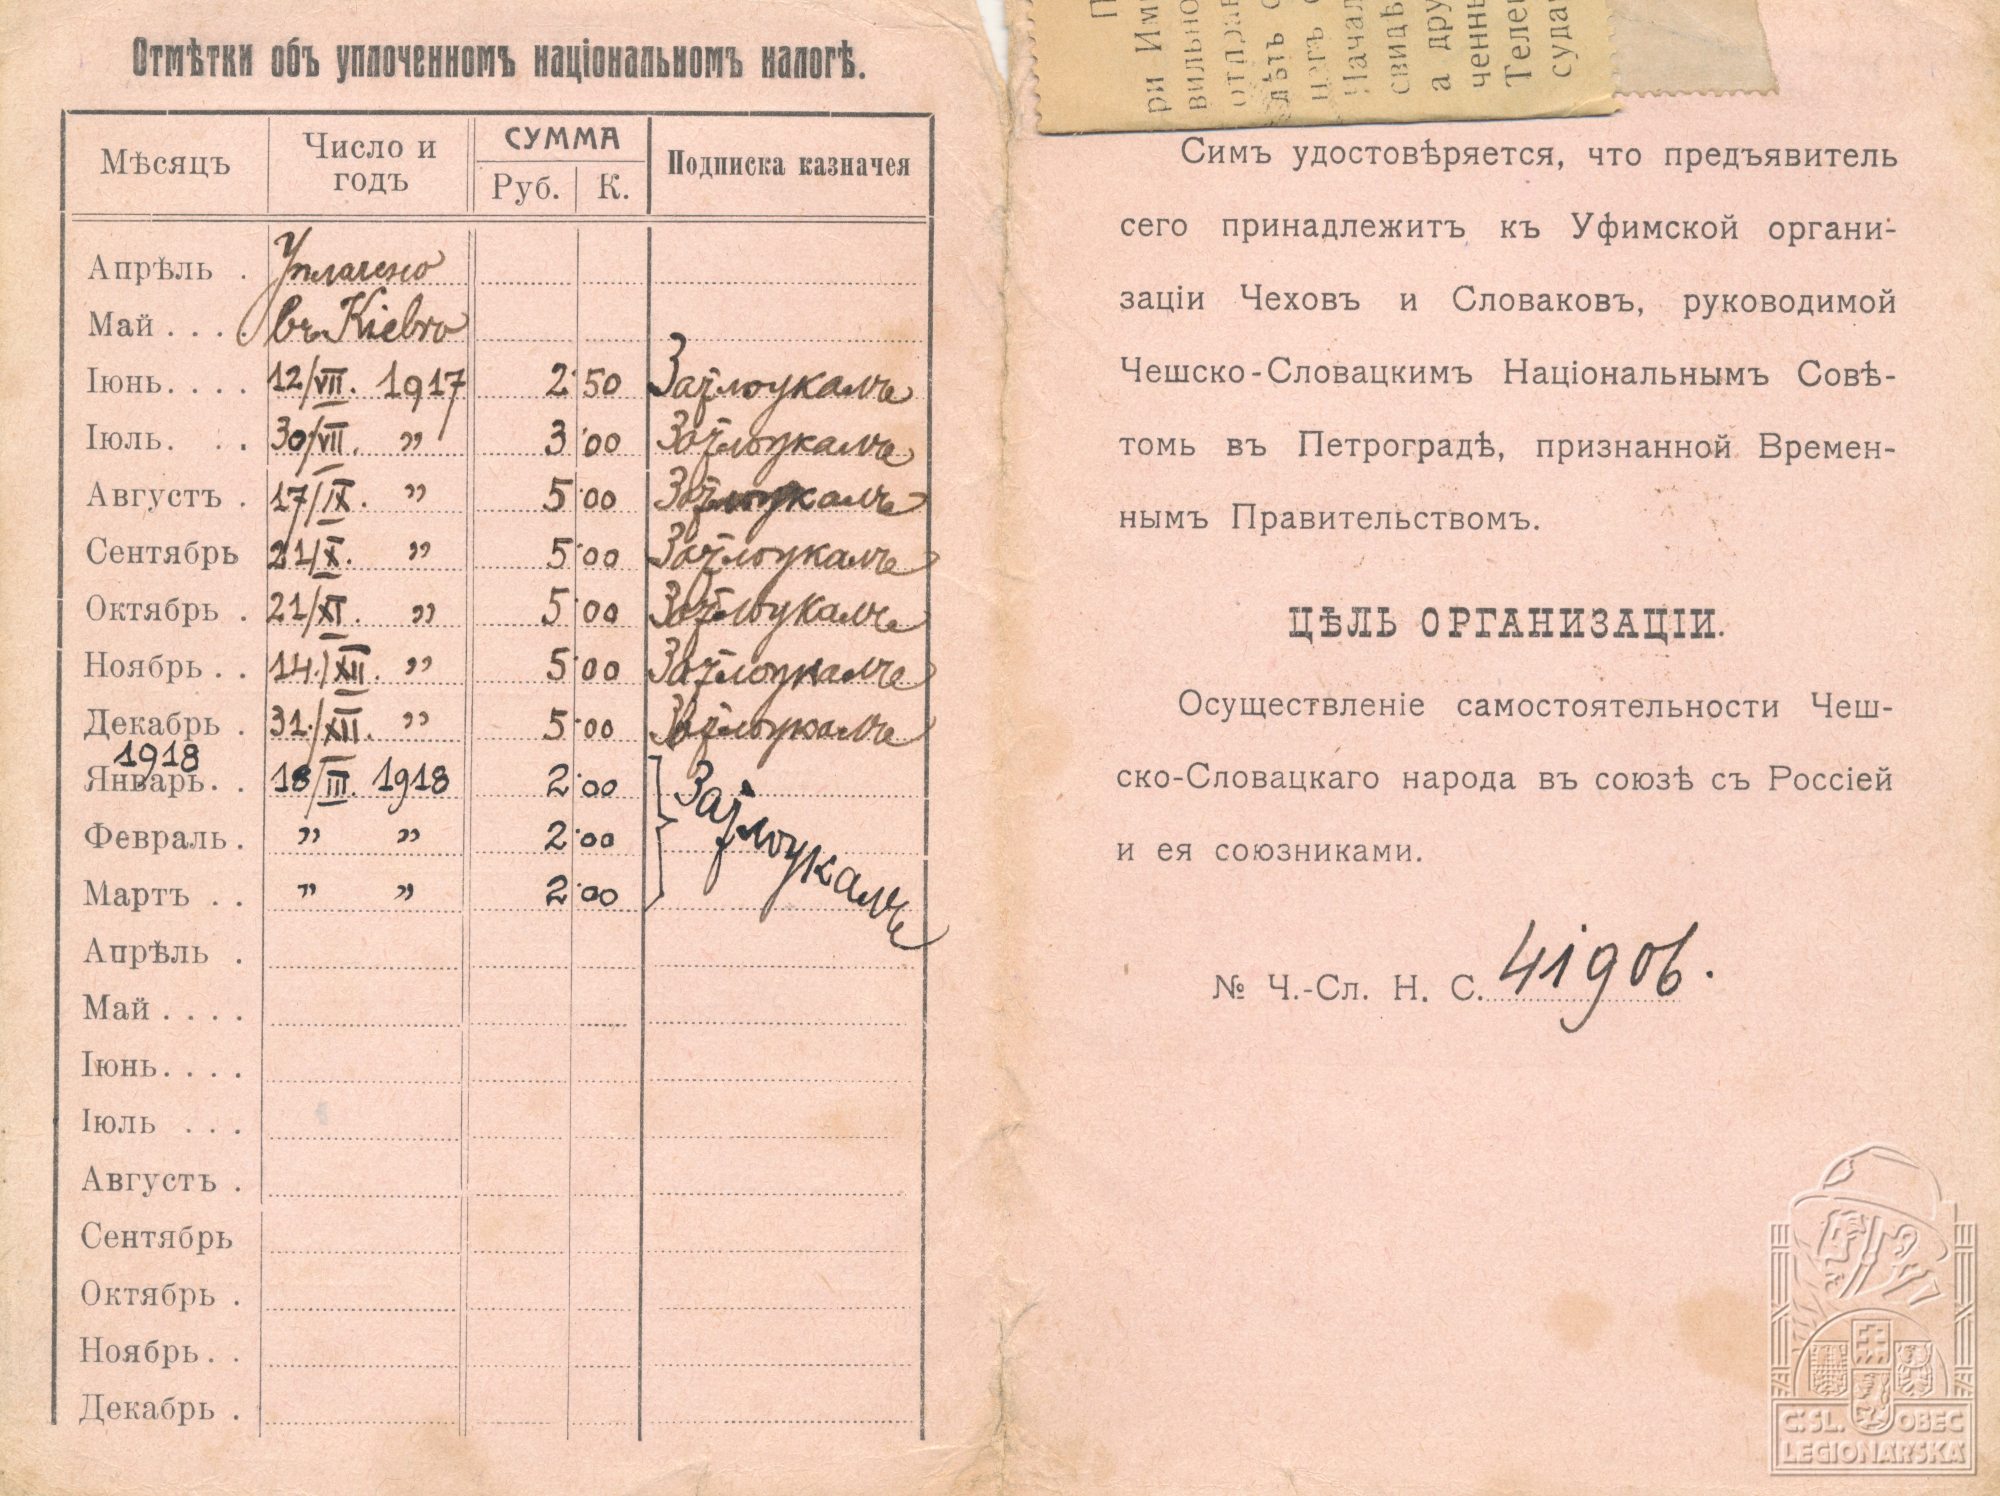 Отмѣтки объ уплоченномъ національномъ налогѣ.
Мѣсяцъ Число и годъ СУММА Руб. К. Подписка казначея
Апрѣль . Уплачено
Май . . . . въ Кіевѣ
Іюнь. . . . 12/VII. 1917 2 50
Іюль. . . 30/VII. " 3 00
Августъ . 17/IX. " 5 00
Сентябрь 21/X. " 5 00
Октябрь . 21/XI. " 5 00
Ноябрь . . 14./XII. " 5 00
Декабрь . 31./XII. " 5 00
1918
Январь. . 18/III. 1918 2 00
Февраль. " " 2 00
Мартъ . . " " 2 00
Апрѣль .
Май . . . .
Іюнь. . . .
Іюль . . .
Августъ .
Сентябрь
Октябрь .
Ноябрь. .
Декабрь .
ри Им
вильно
отправ
дѣть с
Начал
свидѣ
а дру
ченнь
Телег
суда
Симъ удостовѣряется, что предъявитель
сего принадлежитъ къ Уфимской органи-
заціи Чеховъ и Словаковъ, руководимой
Чешско-Словацкимъ Національнымъ Совѣ-
томь въ Петроградѣ, признанной Времен-
нымъ Правительствомъ.
ЦѢЛЬ ОРГАНИЗАЦІИ.
Осуществленіе самостоятельности Чеш-
ско-Словацкаго народа въ союзѣ съ Россіей
и ея союзниками.
№ Ч.-Сл. Н. С. 41906.
Č.SL. OBEC
LEGIONÁŘSKÁ